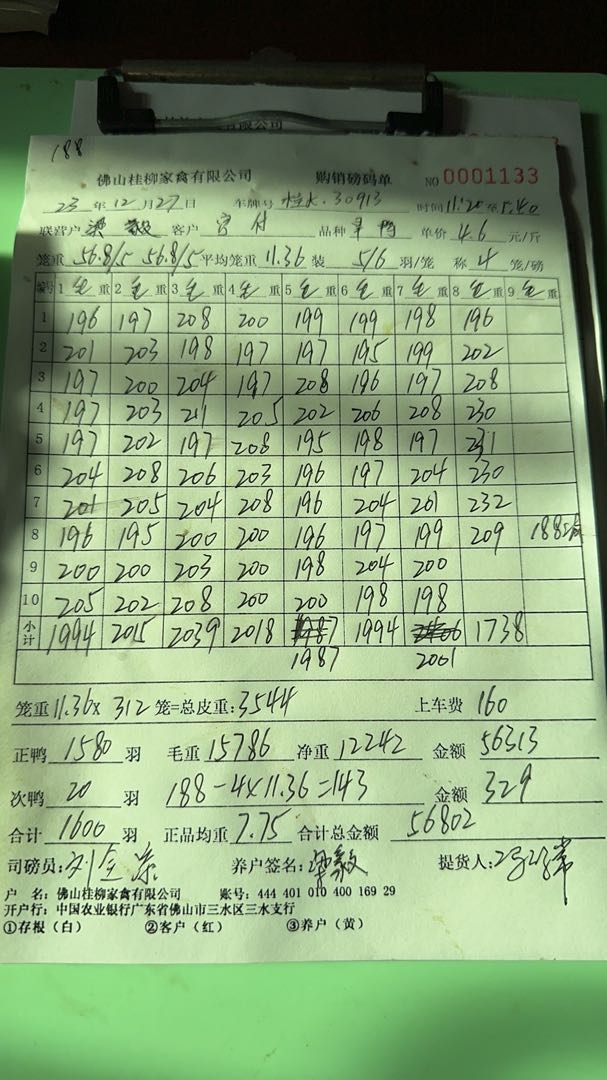 188
佛山桂柳家禽有限公司 购销磅码单 NO 0001133
23 年 12 月 27 日 车牌号 桂K.30913 时间 11:20 至 5:40
联营户 梁毅 客户 品种 单价 4.6 元/斤
笼重 56.8/5 56.8/5 平均笼重 11.36 装 5/6 羽/笼 称 4 笼/磅
编号 1 毛 重 2 毛 重 3 毛 重 4 毛 重 5 毛 重 6 毛 重 7 毛 重 8 毛 重 9 毛 重
1 196 197 208 200 199 199 198 196
2 201 203 198 197 197 195 199 202
3 197 200 204 197 208 196 197 208
4 197 203 211 205 202 206 208 230
5 197 202 197 208 195 198 197 231
6 204 208 206 203 196 197 204 230
7 201 205 204 208 196 204 201 232
8 196 195 200 200 196 197 199 209 188
9 200 200 203 200 198 204 200
10 205 202 208 200 200 198 198
小计 1994 2015 2039 2018 1994 1738
1987 2001
笼重 11.36 x 312 笼=总皮重: 3544 上车费 160
正鸭 1580 羽 毛重 15786 净重 12242 金额 56313
次鸭 20 羽 188-4x11.36=143 金额 329
合计 1600 羽 正品均重 7.75 合计总金额 56802
司磅员: 养户签名: 梁毅 提货人:
户 名: 佛山桂柳家禽有限公司 账号: 444 401 010 400 169 29
开户行: 中国农业银行广东省佛山市三水区三水支行
①存根(白) ②客户(红) ③养户(黄)